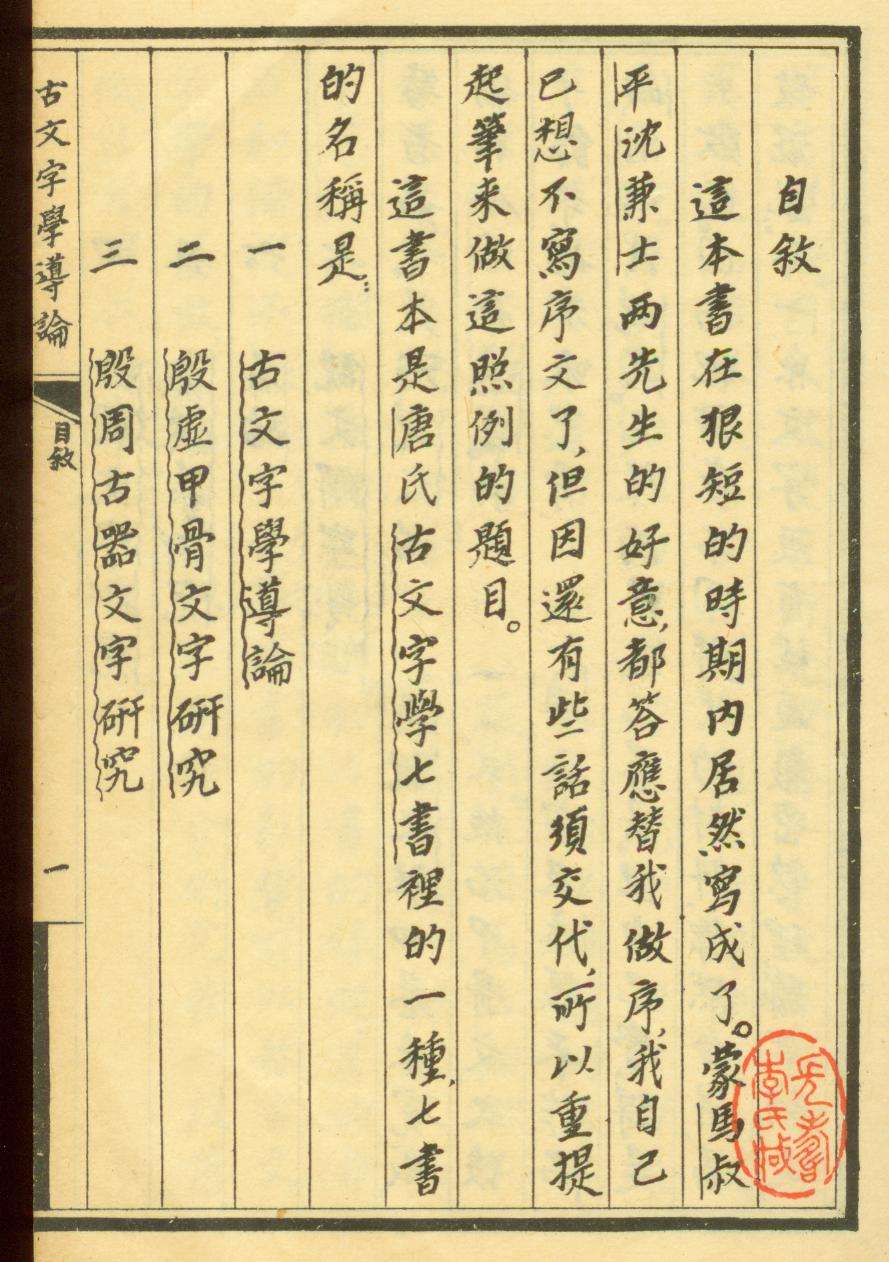 自敘
這本書在狠短的時期內居然寫成了。蒙馬叔
平沈兼士两先生的好意，都答應替我做序，我自己
已想不寫序文了，但因還有些話須交代，所以重提
起筆来做這照例的題目。
這書本是唐氏古文字學七書裡的一種，七書
的名稱是：
一　古文字學導論
二　殷虛甲骨文字研究
三　殷周古器文字研究
古文字學導論
自敘
一
李氏藏